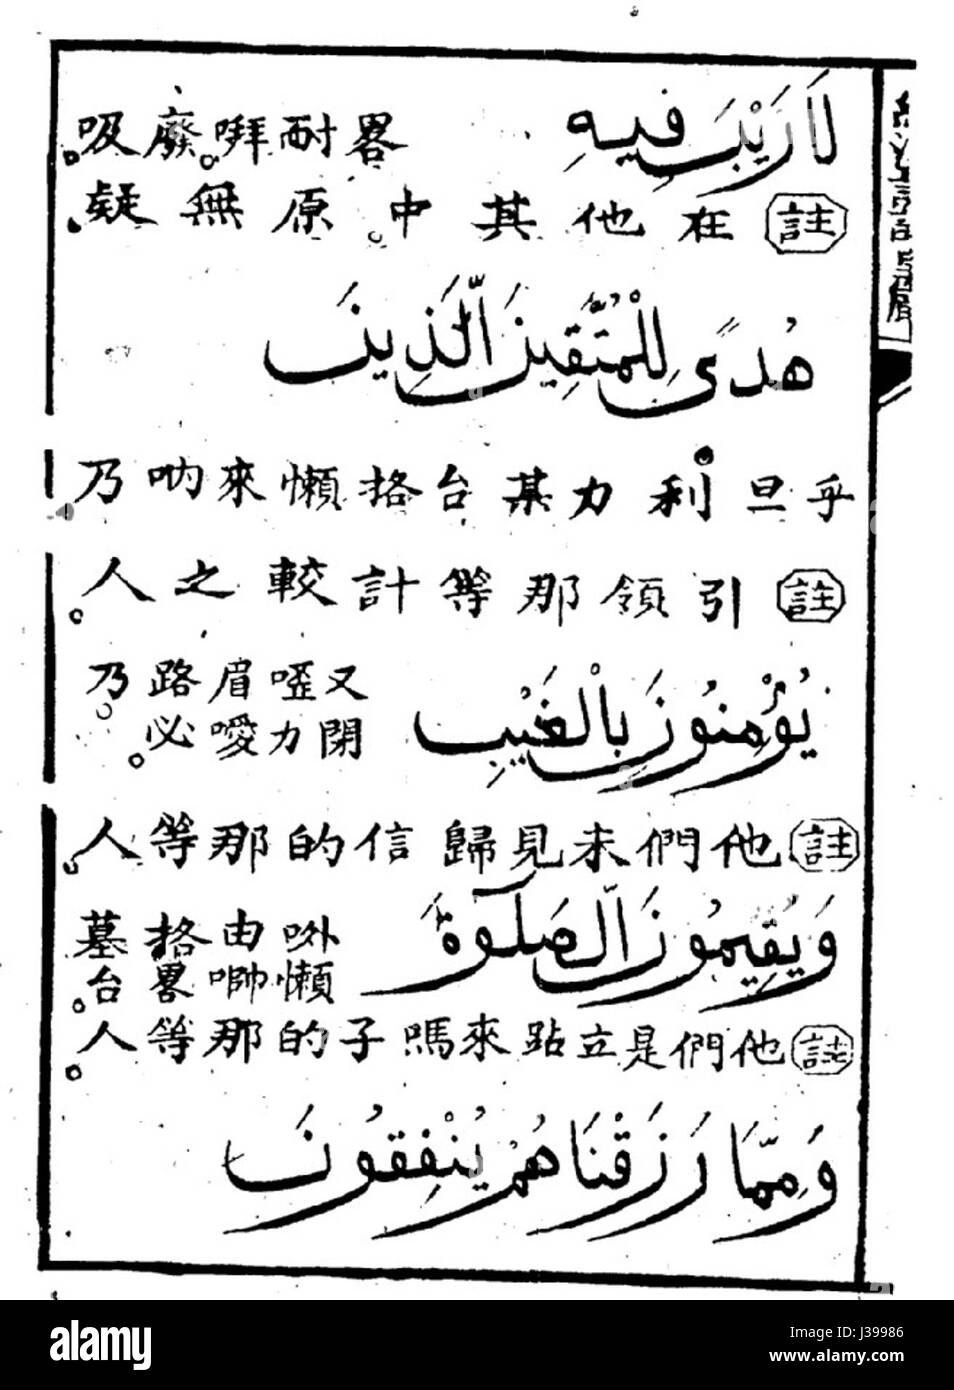 لَا رَيْبَ فِيهِ
畧耐哶廢吸。
註 在他其中。原無疑。
هُدًى لِلْمُتَّقِينَ الَّذِينَ
乎旦利力某台挌懶來吶乃
註 引領那等計較之人。
يُؤْمِنُونَ بِالْغَيْبِ
又啞眉路乃。
閉力噯必。
註 他們未見歸信的那等人。
وَيُقِيمُونَ الصَّلَوةَ
咉由挌墓
懶啢畧台。
註 他們是立站來嗎子的那等人。
وَمِمَّا رَزَقْنَاهُمْ يُنْفِقُونَ
alamy
Image ID: J39986
www.alamy.com